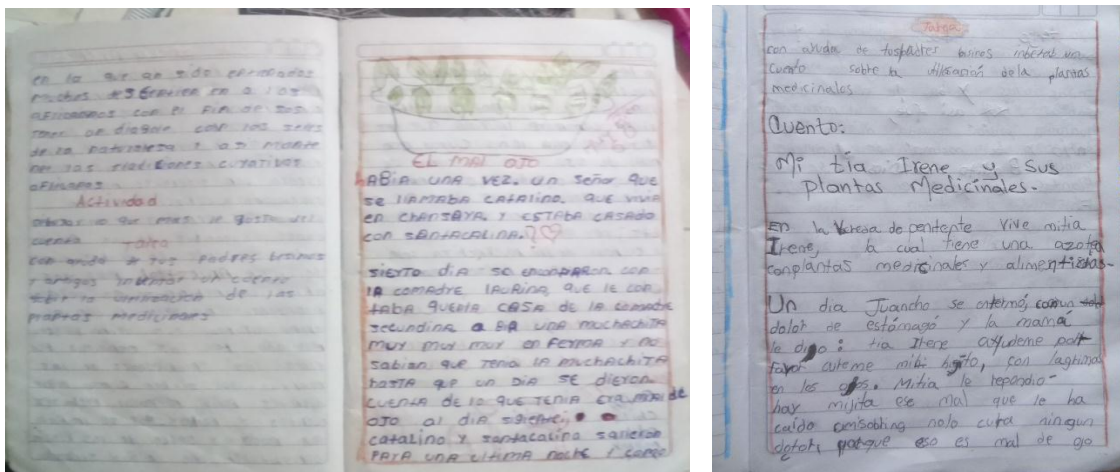 en la que an sido
muchos en a los
con el fin de
de la naturaleza y
Actividad
cuento
Tarea
con de tus Padres
inventar un cuento
de las
plantas medicinales
EL MAL OJO
HABIA UNA VEZ. UN SEÑOR QUE
SE LLAMABA CATALINO. QUE VIVIA
en CHANSAYA. Y ESTABA CASADO
con SANTACALINA.
SIERTO DIA SE enconpARON con
LA comadre LAURINA, QUE LE con
TABA QUENLA CASA DE LA comadre
secundina A BIA UNA MUCHACHITA
MUY MUY MUY en FERMA Y no
sabian QUE Tenia LA MUCHACHITA
HASTA QUE UN DIA SE DIERON
CUENTA DE LO QUE TENIA ERA MAL de
OJO al DIA
catalino y santacalina salieron
PARA UNA ULTIMA noche
Tarea
con aruda de tuspadres
Cuento sobre la utilización dela plantas
medicinales
Cuento:
Mi tía Irene y Sus
plantas Medicinales.
En la Vereda de penitente Vive mitia
Irene, la cual tiene una azotea
conplantas medicinales y alimenticias-
Un dia Juancho se enfermó, conun
dolor de estómagó y la mamá
le dijo: tia Irene ayudeme por
favor cureme mihijito, con lagrima
en los ojos. Mitia le repondio-
hay mijita ese mal que le ha
caido amisobrino nolo cura ningun
dotor, porque eso es mal de ojo